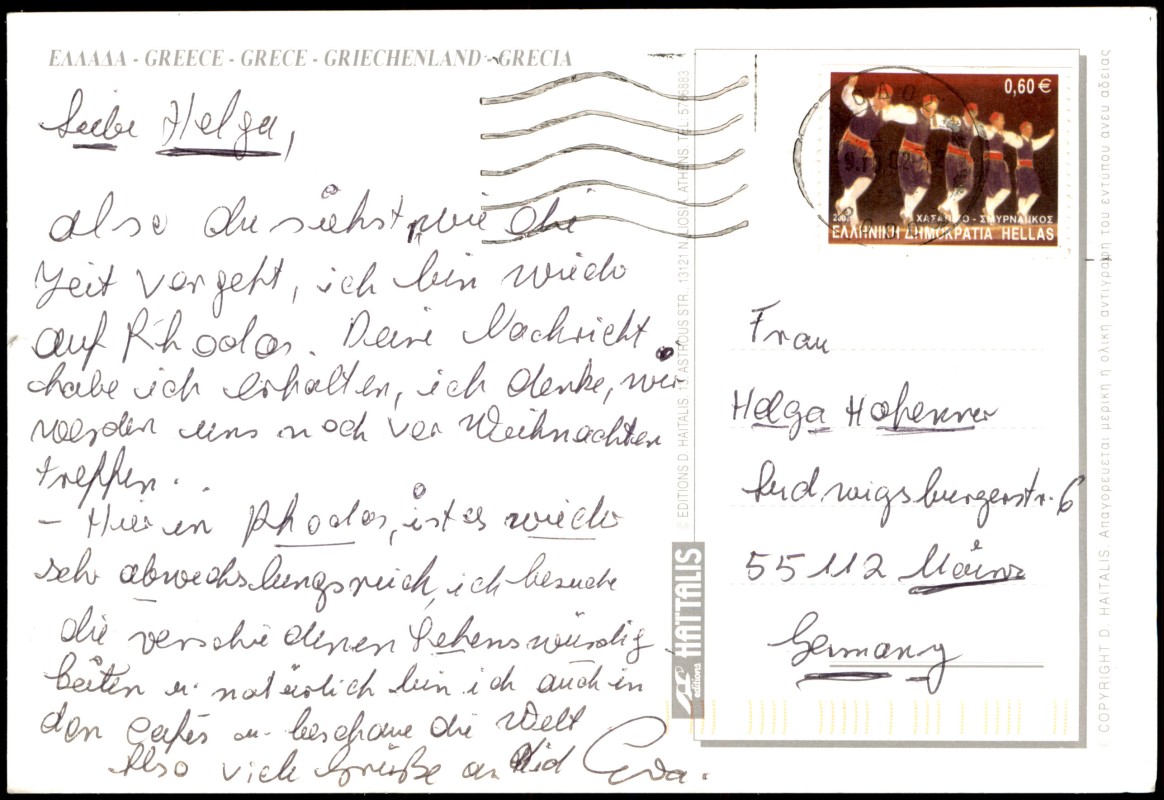 ΕΛΛΑΔΑ - GREECE - GRECE - GRIECHENLAND - GRECIA
Liebe Helga,
also du siehst, wie die
Zeit vergeht, ich bin wieder
auf Rhodos. Deine Nachricht
habe ich erhalten, ich denke, wir
werden uns noch vor Weihnachten
treffen.
- Hier in Rhodos, ist es wieder
sehr abwechslungsreich, ich besuche
die verschiedenen Sehenswürdig
keiten u. natürlich bin ich auch in
den Cafés u. beschaue die Welt
Also viele Grüße an Dich Eva.
© EDITIONS D. HAITALIS 13 ASTROUS STR. 13121 N. ILIOSIA ATHENS TEL. 5766883
HAITALIS
editions
0,60 €
ΧΑΣΑΠΙΚΟ - ΣΜΥΡΝΑΙΙΚΟΣ
ΕΛΛΗΝΙΚΗ ΔΗΜΟΚΡΑΤΙΑ HELLAS
Frau
Helga
Ludwigsburgerstr. 6
55112 Mainz
Germany
© COPYRIGHT D. HAITALIS. Απαγορευεται μερικη η ολικη αντιγραφη του εντυπου ανευ αδειας